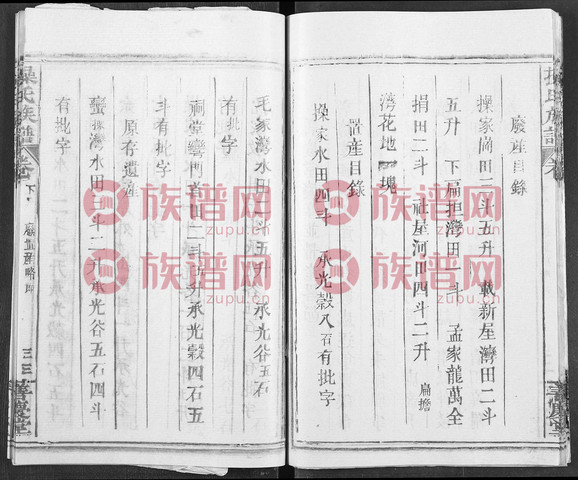 廢産目錄
操家崗田二斗五升 載新屋灣田二斗
五升 下扁担灣田一斗 孟家龍萬全
捐田二斗 社屋河田四斗二升 扁擔
灣花地一塊
置産目錄
操家水田四斗 承光穀八石有批字
毛家灣水田 斗五升 承光谷五石
有批字
祠堂灣門首田二斗五升承光穀四石五
斗有批字
原存遺産
灣水田 斗二升承光谷五石四斗
有批字
操氏族譜
卷 下
三三
善慶堂
族谱网
zupu.cn